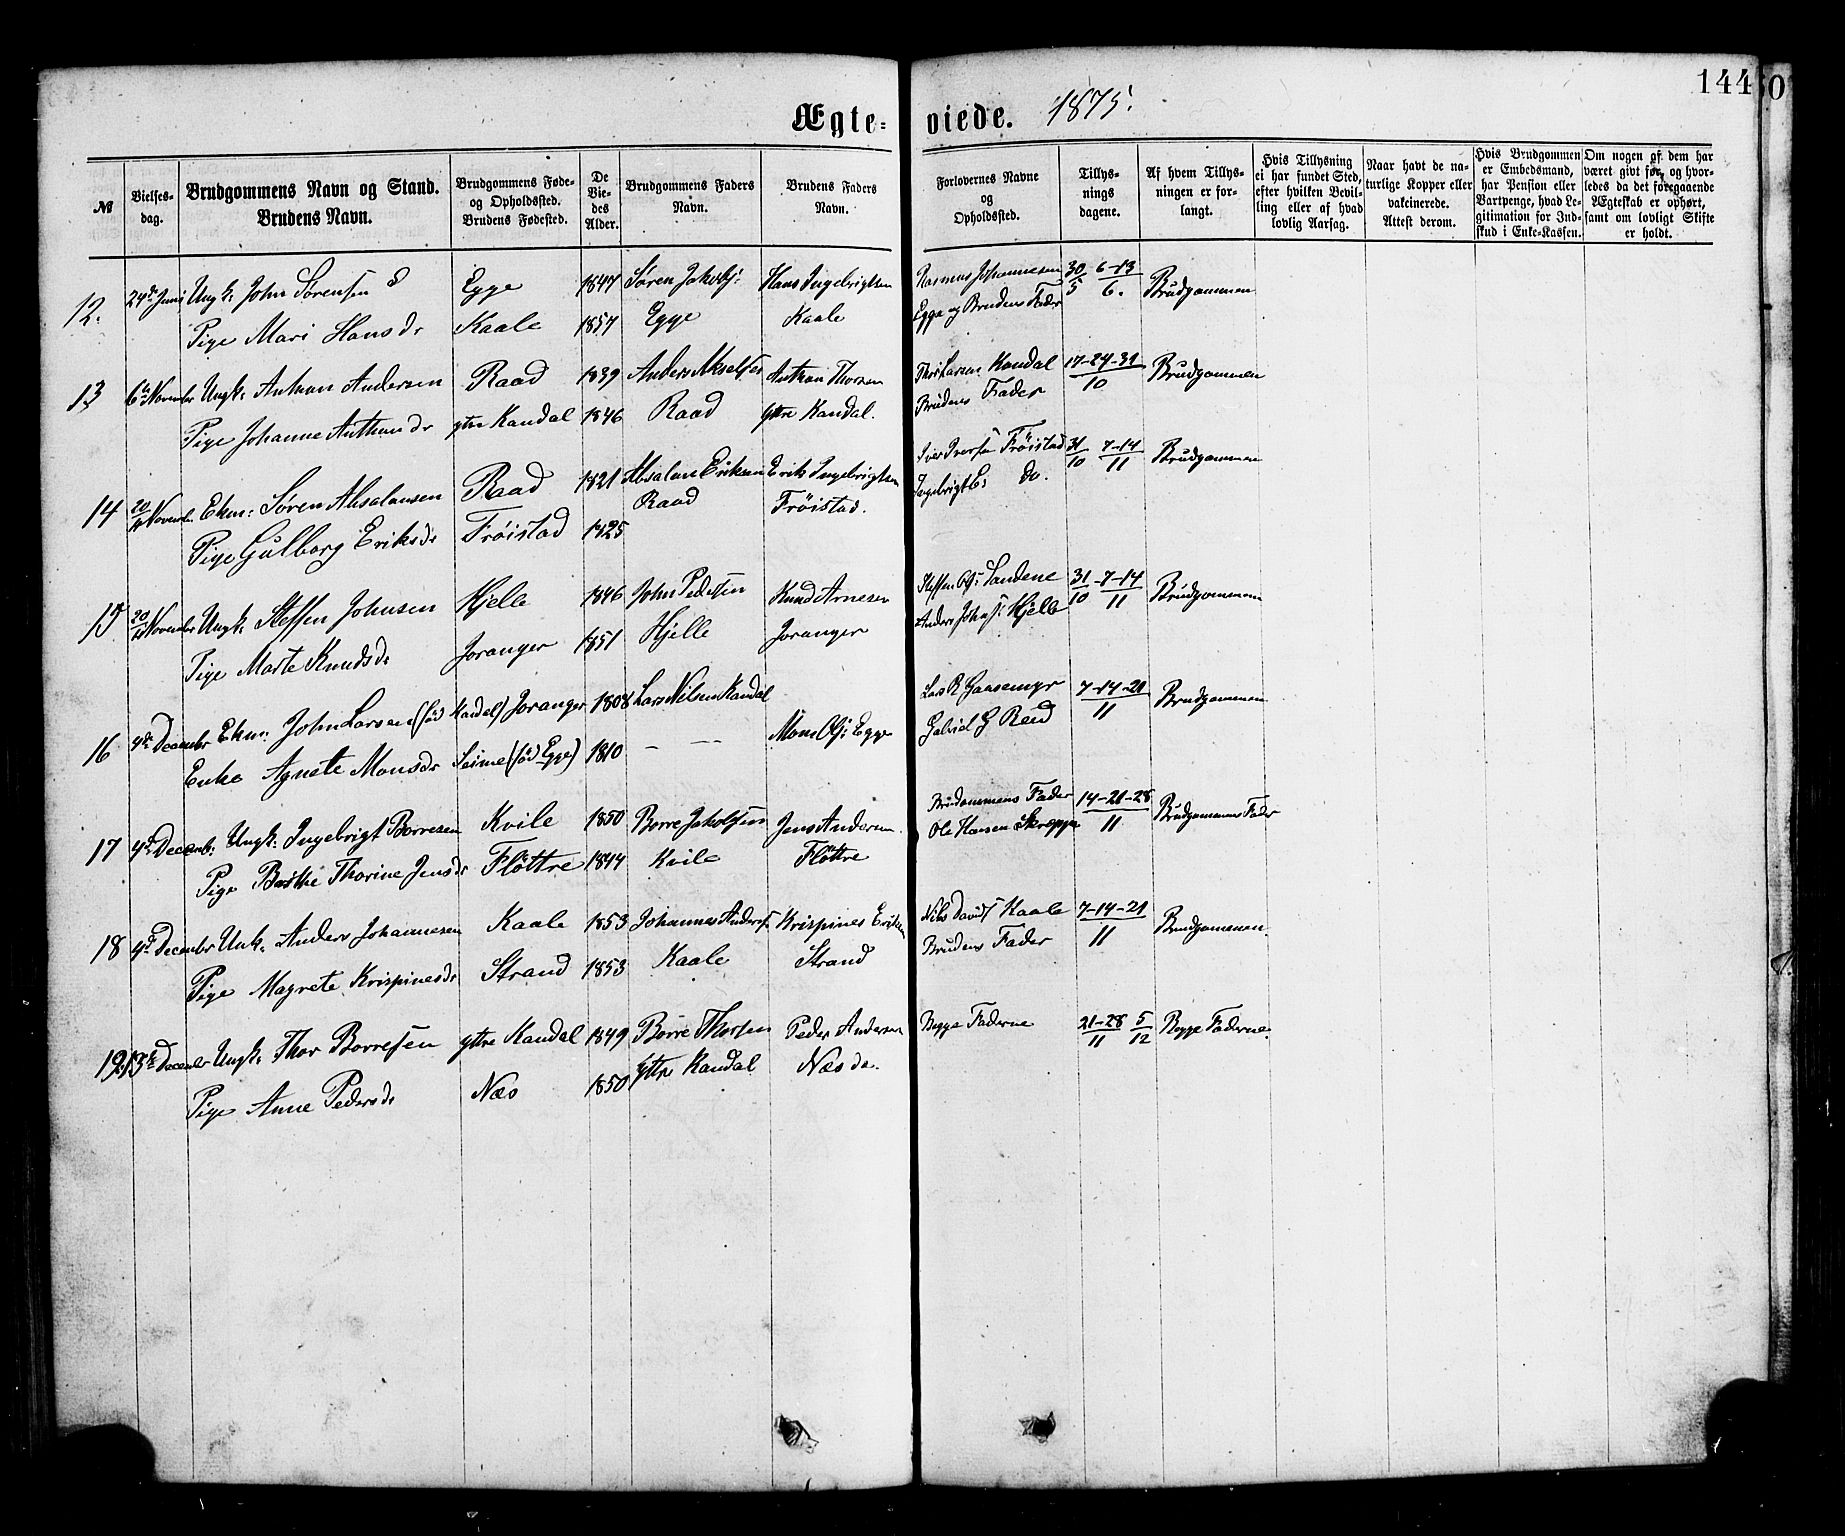 144
Ægte- viede. 1875.
№
Vielses-dag.
Brudgommens Navn og Stand. Brudens Navn.
Brudgommens Føde- og Opholdssted. Brudens Fødested.
De Vie-des Alder.
Brudgommens Faders Navn.
Brudens Faders Navn.
Forlovernes Navne og Opholdssted.
Tillys-nings dagene.
Af hvem Tillys-ningen er for-langt.
Hvis Tillysning ei har fundet Sted, efter hvilken Bevil-ling eller af hvad lovlig Aarsag.
Naar havt de na-turlige Kopper eller vakcinerede. Attest derom.
Hvis Brudgommen er Embedsmand, har Pension eller Vartpenge, hvad Le-gitimation for Ind-skud i Enke-Kassen.
Om nogen af dem har været givt før, og hvor-ledes da det foregaaende Ægteskab er ophørt, samt om lovligt Skifte er holdt.
12. 24de Juni Ungk: John Sørensen Egge 1847 Søren Jakobs: Hans Ingebrigtsen Rasmus Johannesen 30/5 6-13/6. Brudgommen
Pige Mari Hansdr Kaale 1857 Egge Kaale Egge og Brudens Fader
13 6te November Ungk: Anthon Andersen Raad 1839 Anders Akselsen Anthon Thorsen Thor Larsen Kandal 17-24-31/10 Brudgommen
Pige Johanne Anthondr ytre Kandal 1846 Raad Yttre Kandal. Brudens Fader
14 20/11 Novemb. Ekm: Søren Absalonsen Raad 1821 Absalon Eriksen Erik Ingebrigtsen Iver Iversen Frøistad 31/10 7-14/11 Brudgommen
Pige Gulborg Eriksdr Frøistad 1825 Raad Frøistad. Ingebrigt E: do.
15 20/11 November Ungk: Steffen Johnsen Hjelle 1846 John Pedersen Knud Arnesen Steffen Ols: Sandene 31/10 7-14/11 Brudgommen
Pige Marte Knudsdr Joranger 1851 Hjelle Joranger Anders Johns: Hjelle
16 4de December Ekm: John Larsen (fød Kandal) Joranger 1808 Lars Nilsen Kandal Lars R Gaasemyr 7-14-21/11 Brudgommen
Enke Agnete Monsdr Seime (fød Egge) 1810 — — Mons Ols: Egge Gabriel G Reed
17 4de Decemb: Ungk: Ingebrigt Børresen Kvile 1850 Børre Jakobsen Jens Andersen Brudgommens Fader 14-21-28/11 Brudgommens Fader
Pige Berthe Thorine Jensdr Fløttre 1844 Kvile Fløttre Ole Hansen Skreppe
18 4de December Unk: Anders Johannesen Kaale 1853 Johannes Anders: Krispines Eriksen Nils Davids: Kaale 7-14-21/11 Brudgommen.
Pige Magrete Krispinesdr Strand 1853 Kaale Strand Brudens Fader
19. 13de December Ungk: Thor Børresen yttre Kandal 1849 Børre Thorsen Peder Andersen Begge Fædrene 21-28/11 5/12 Begge Fædrene.
Pige Anne Pedersdr Næs 1850 Yttre Kandal Næs